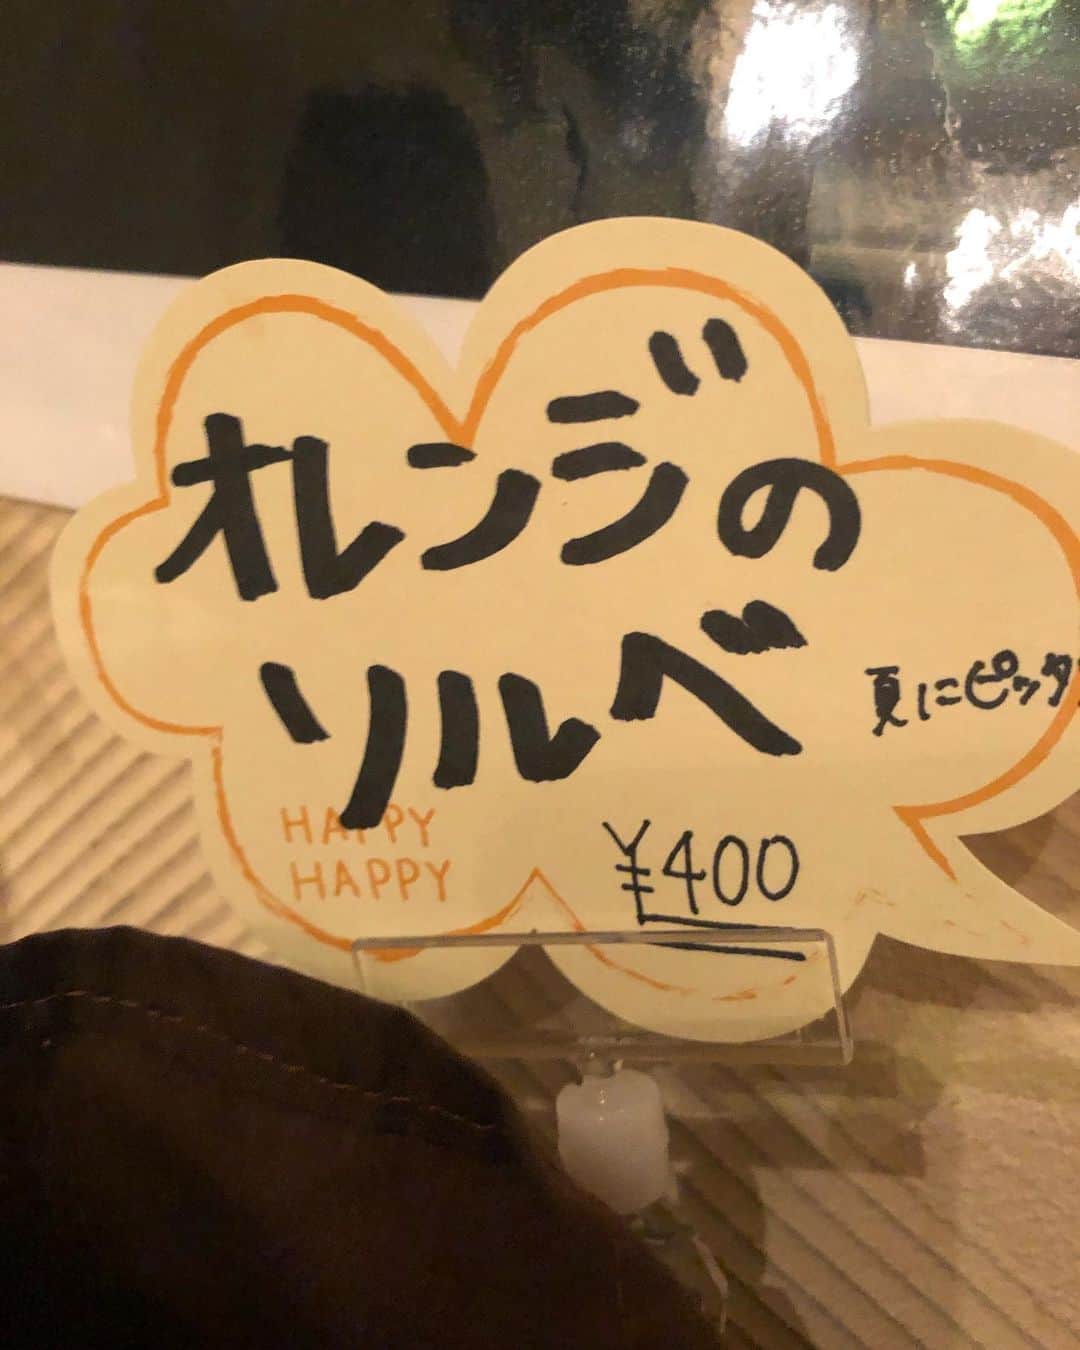 オレンジの
ソルベ
夏にピッタ
HAPPY
HAPPY
¥400